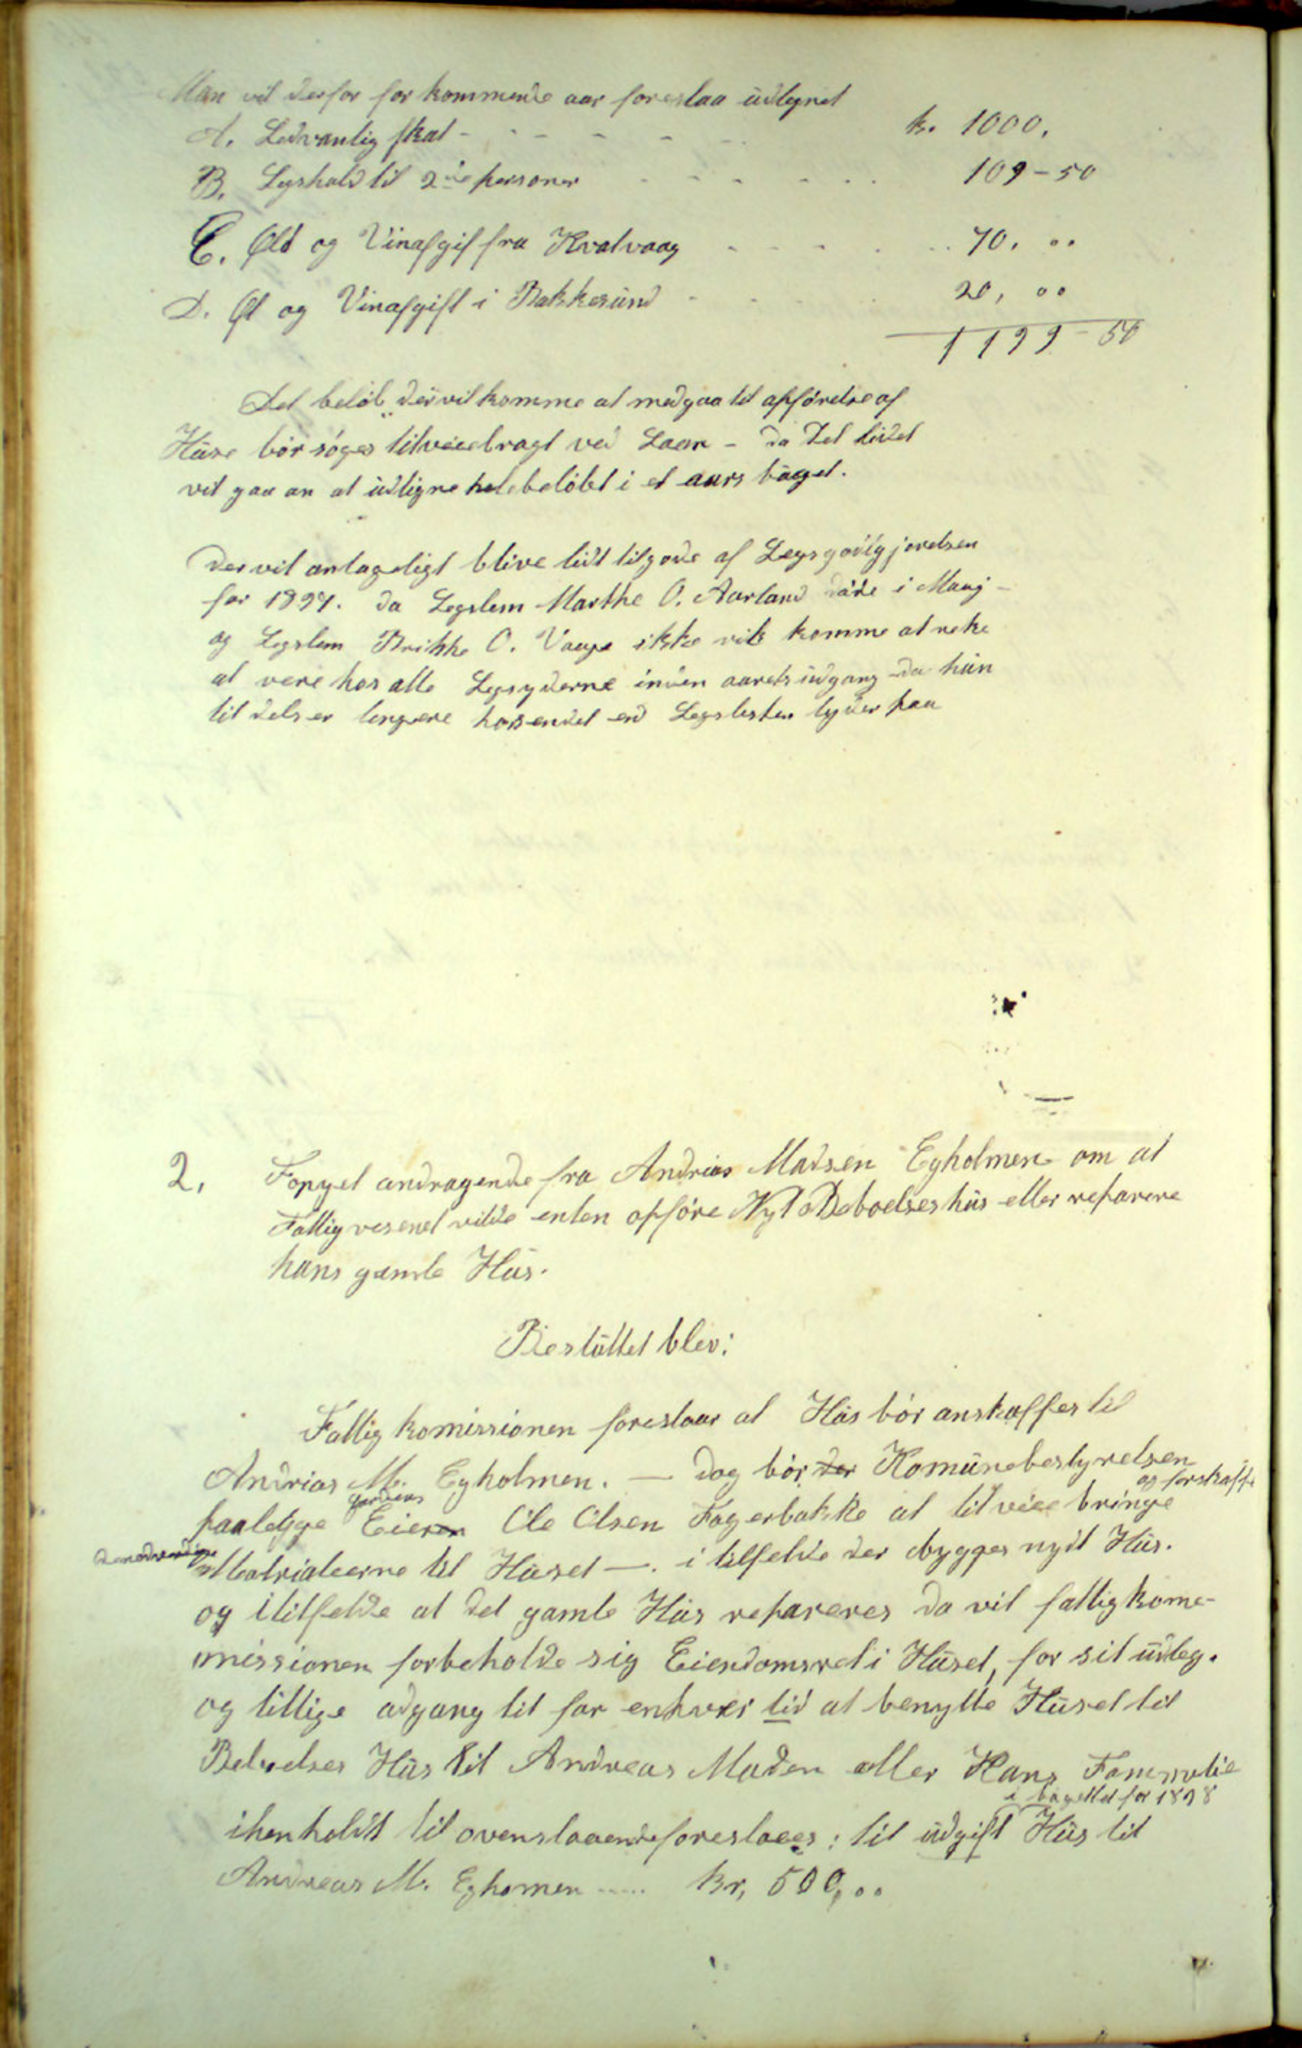 Man vil derfor for kommende aar foreslaa udlignet
A. Sedvanlig skat - - - - - kr. 1000.
B. Legshold til 2de personer - - - - - 109-50
C. Øl og Vinafgif fra Kvalvaag - - - - - 70. ..
D. Øl og Vinafgift i Bakkesund - - - - 20, ..
1199-50
Det beløb der vil komme at medgaa til opførelse af
Huse bør søges tilveiebragt ved Laan - da Det
vil gaa an at udligne hele beløbet i et aars buget.
Der vil antageligt blive lidt tilgode af Legsgodtgjørelsen
for 1897. da Legslem Marthe O. Aarland døde i Maaj -
og Legslem Brithe O. Vaage ikke vil komme at reke
at vere hos alle Legsyderne inden aarets udgang - da hun
til dels er lengere hos endel end Legslisten lyder paa
2. Fonyet andragende fra Andrias Madsen Egholmen om at
Fattigvesenet vilde enten opføre Nyt Beboelseshus eller reparere
hans gamle Hus.
Besluttet blev:
Fattigkomissionen foreslaar at Hus bør anskaffes til
Andrias M. Egholmen. - Dog bør der Komunebestyrelsen
paalegge gardens Eieren Ole Olsen Fagerbakke at tilveiebringe og forskaffe
de nødvendige Matrialeerne til Huset -. i tilfelde der bygges nydt Hus.
og i tilfelde at det gamle Hus repareres da vil fattigkome-
missionen forbeholde sig Eiendomsret i Huset, for sit udleg.
og tillige adgang til for enhver tid at benytte Huset til
Beboelses Hus til Andreas Madsen eller Hans Fammelie
i bugettet for 1898
ihenholdt til ovenstaaende foreslaaes: til udgift Hus til
Andreas M. Eghomen ..... Kr, 500,..